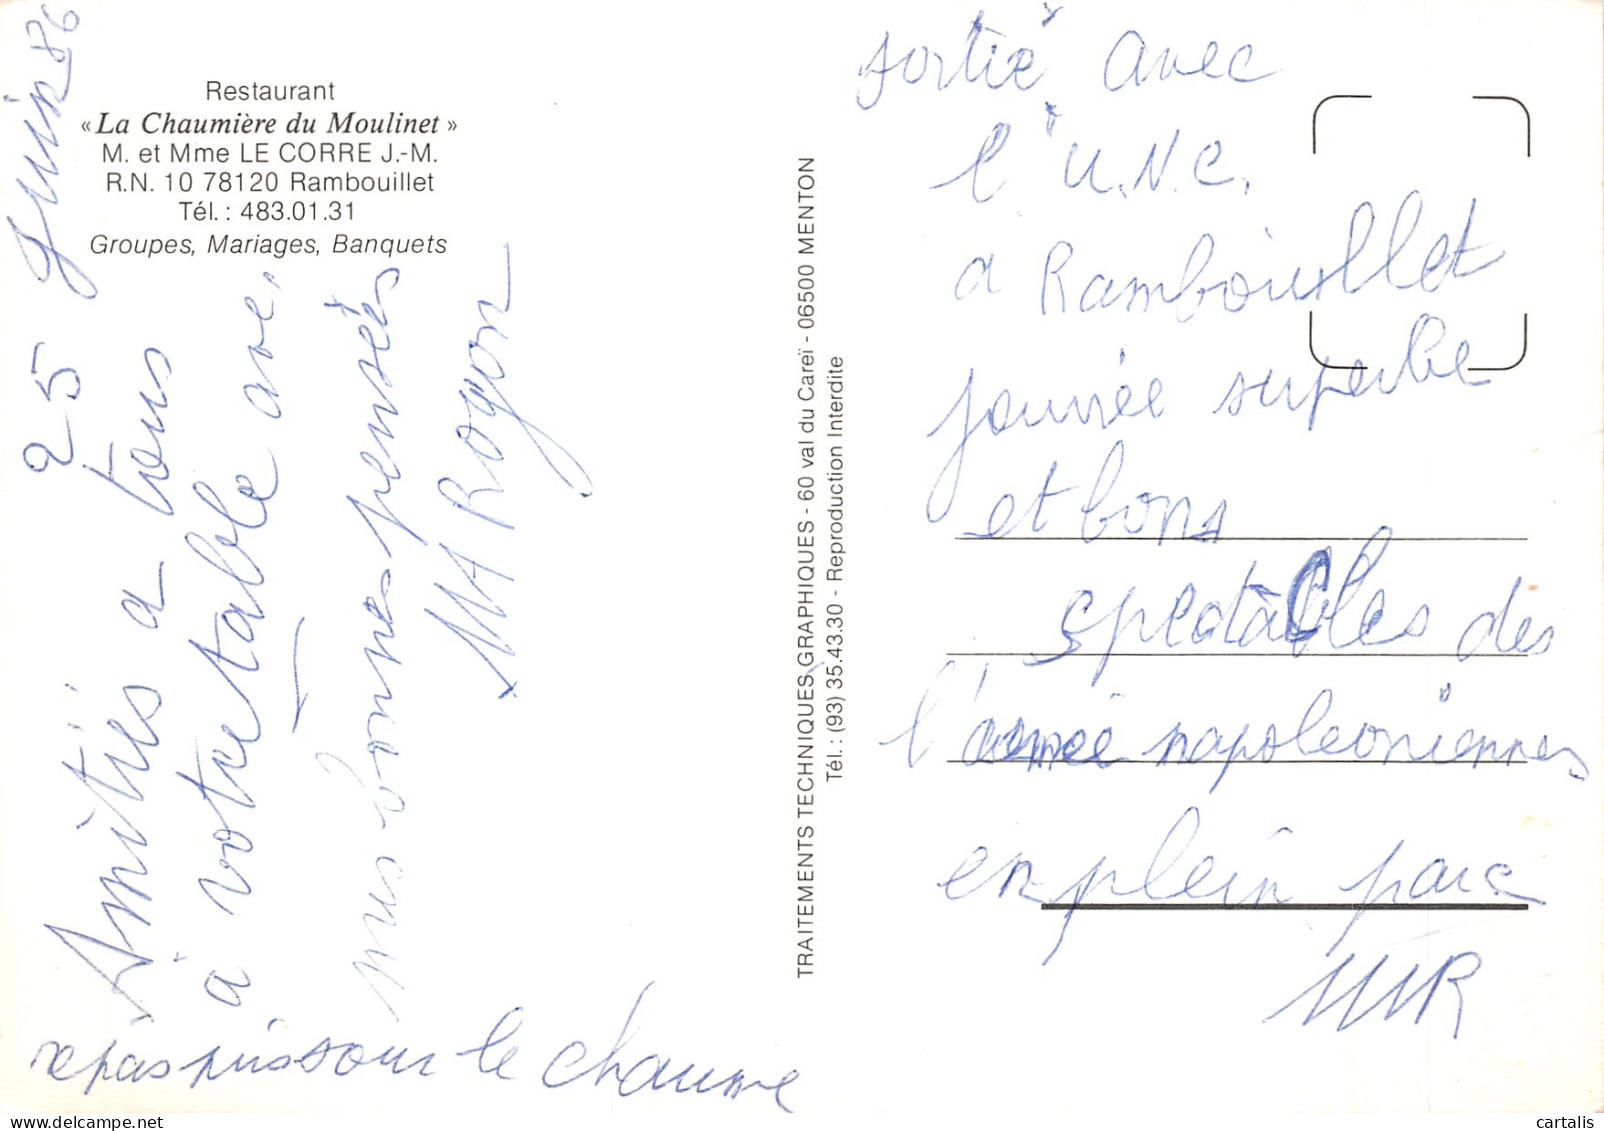 Restaurant
«La Chaumière du Moulinet»
M. et Mme LE CORRE J.-M.
R.N. 10 78120 Rambouillet
Tél. : 483.01.31
Groupes, Mariages, Banquets
25 juin 86
Amitiés a tous
à votre table avec
nos bonnes pensées
MH Royon
repas pris sous le chaume
TRAITEMENTS TECHNIQUES GRAPHIQUES - 60 val du Careï - 06500 MENTON
Tél. : (93) 35.43.30 - Reproduction Interdite
sortie avec
l'U.N.C.
a Rambouillet
journée superbe
et bons
spectacles des
l'armée napoleoniennes
en plein parc
MR
cartalis.com